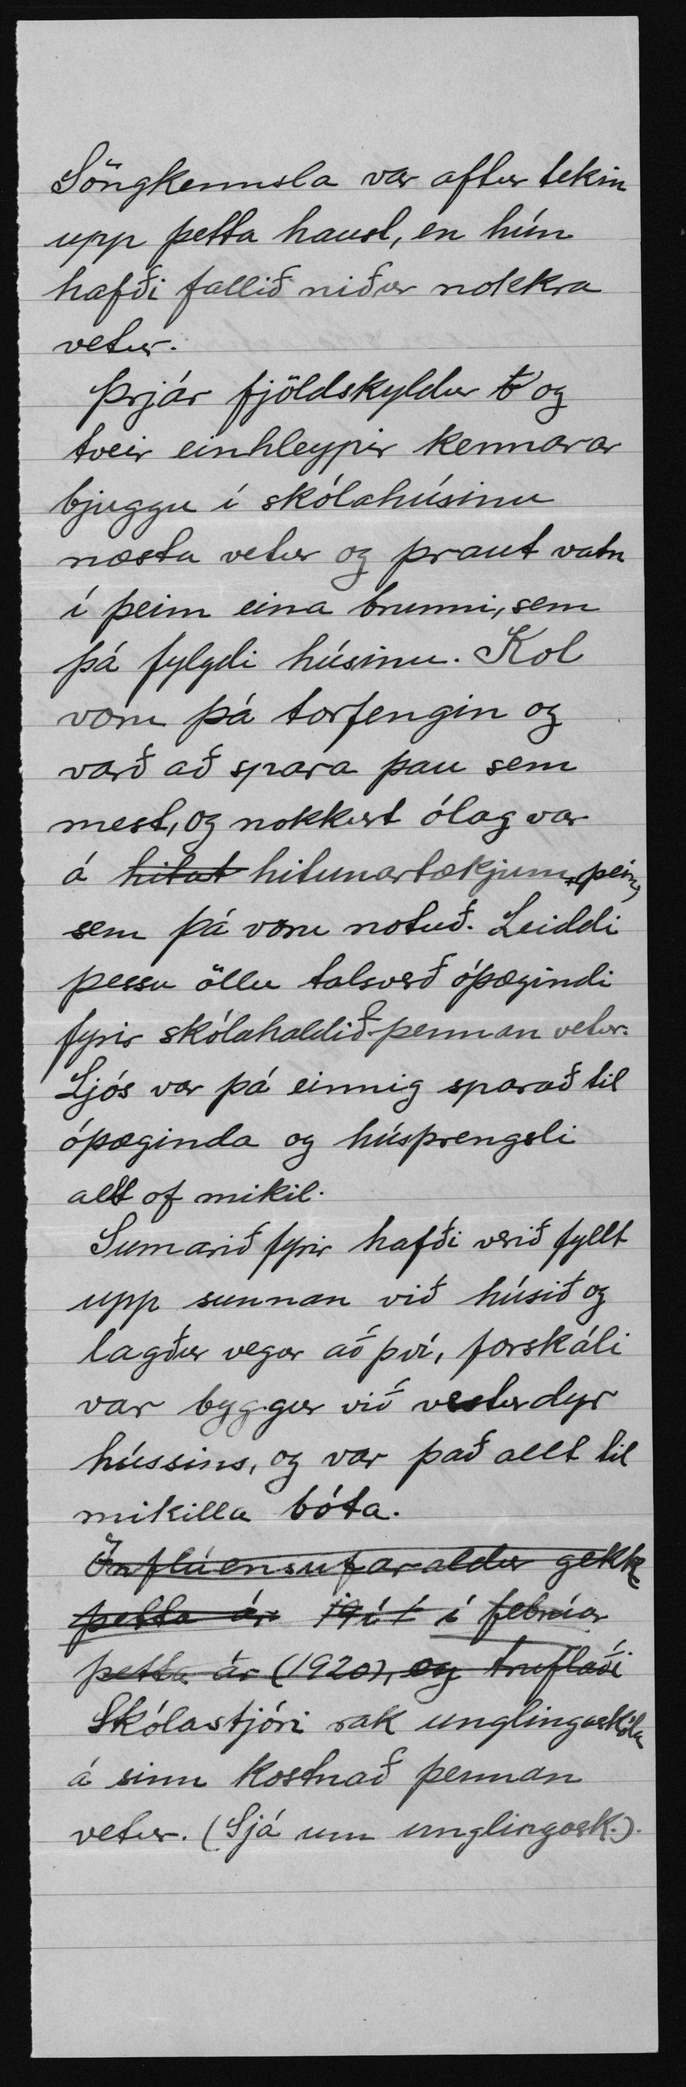 Söngkennsla var aftur tekin
upp þetta haust, en hún
hafði fallið niður nokkra
vetur.
Þrjár fjöldskyldur og
tveir einhleypir kennarar
bjuggu í skólahúsinu
næsta vetur og þraut vatn
í þeim eina brunni, sem
þá fylgdi húsinu. Kol
voru þá torfengin og
varð að spara þau sem
mest, og nokkurt ólag var
á hitat hitunartækjum þeim,
sem þá voru notuð. Leiddi
þessu öllu talsverð óþægindi
fyrir skólahaldið þennan vetur.
Ljós var þá einnig sparað til
óþæginda og húsþrengsli
allt of mikil.
Sumarið fyrir hafði verið fyllt
upp sunnan við húsið og
lagður vegur að því, forskáli
var byggður við vesturdyr
hússins, og var það allt til
mikilla bóta.
Inflúensufaraldur gekk
þetta ár í febrúar
þetta ár (1920), og truflaði
Skólastjóri rak unglingaskóla
á sinn kostnað þennan
vetur. (Sjá um unglingask.).